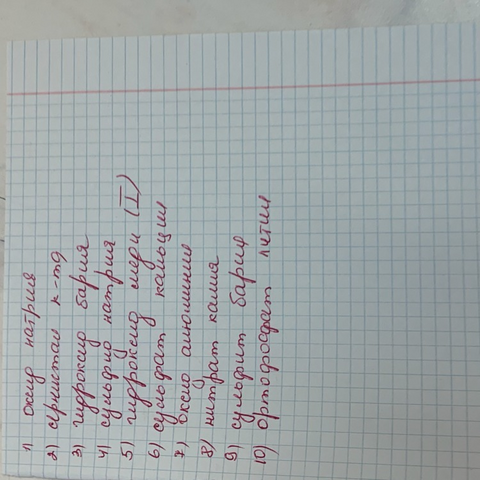 1) оксид натрия
2) сернистая к-та
3) гидроксид бария
4) сульфид натрия
5) гидроксид меди (I)
6) сульфат кальция
7) оксид алюминия
8) нитрат калия
9) сульфит бария
10) ортофосфат лития